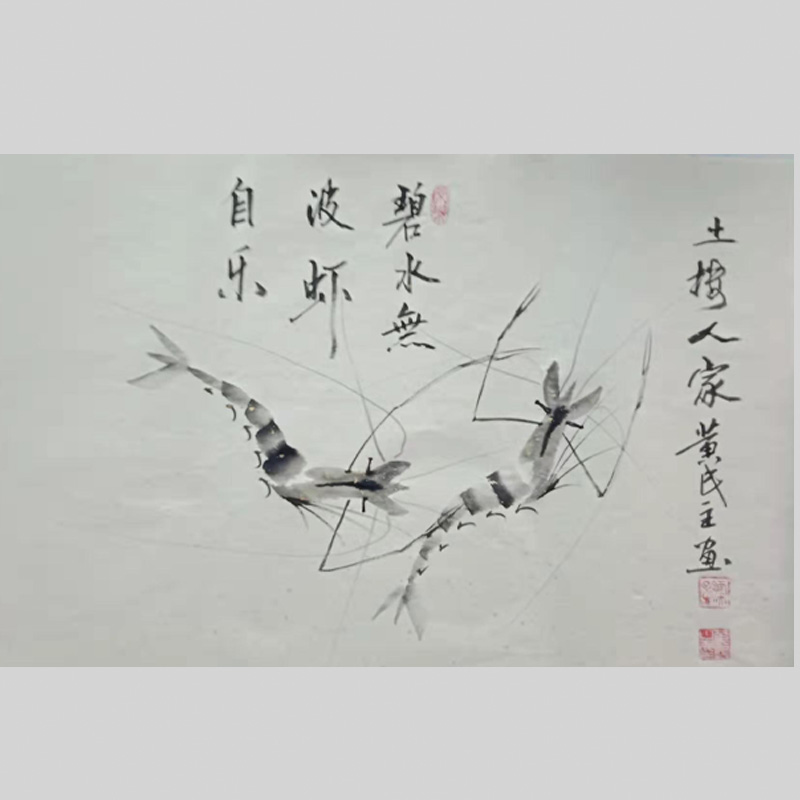 土楼人家黄民主画
碧水無
波虾
自乐